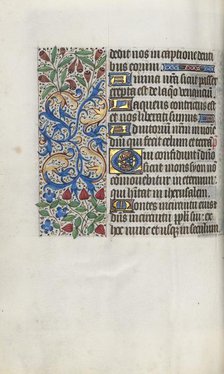 dedit nos in captione denti
bus eorum
Anima nr̄a sicut passer
erepta est de laqo venantiū
Laqueus contritus est
et nos liberati sumus
Adiutoriū nr̄m in noīe
dn̄i qui fecit celum et terrā
Qui confidunt in dn̄o
sicut mons syon nō
comouebitur in eternum
qui hītat in iherusalem
Montes in circuitu eius
et dn̄s in circuitu ppli sui ex
hoc nunc et usq̄ in seculum